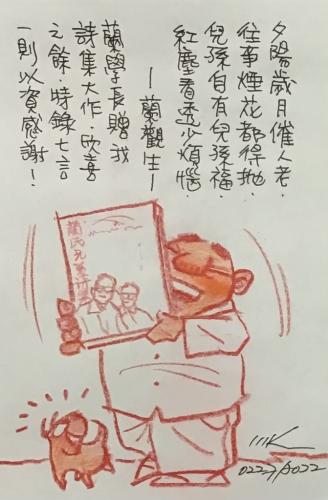 夕陽歲月催人老．
往事煙花都得拋．
兒孫自有兒孫福．
紅塵看透少煩惱．
—蘭觀生—
蘭學長贈我
詩集大作．欣喜
之餘．時錄七言
一則以資感謝！
蘭氏兄弟
0227/2022